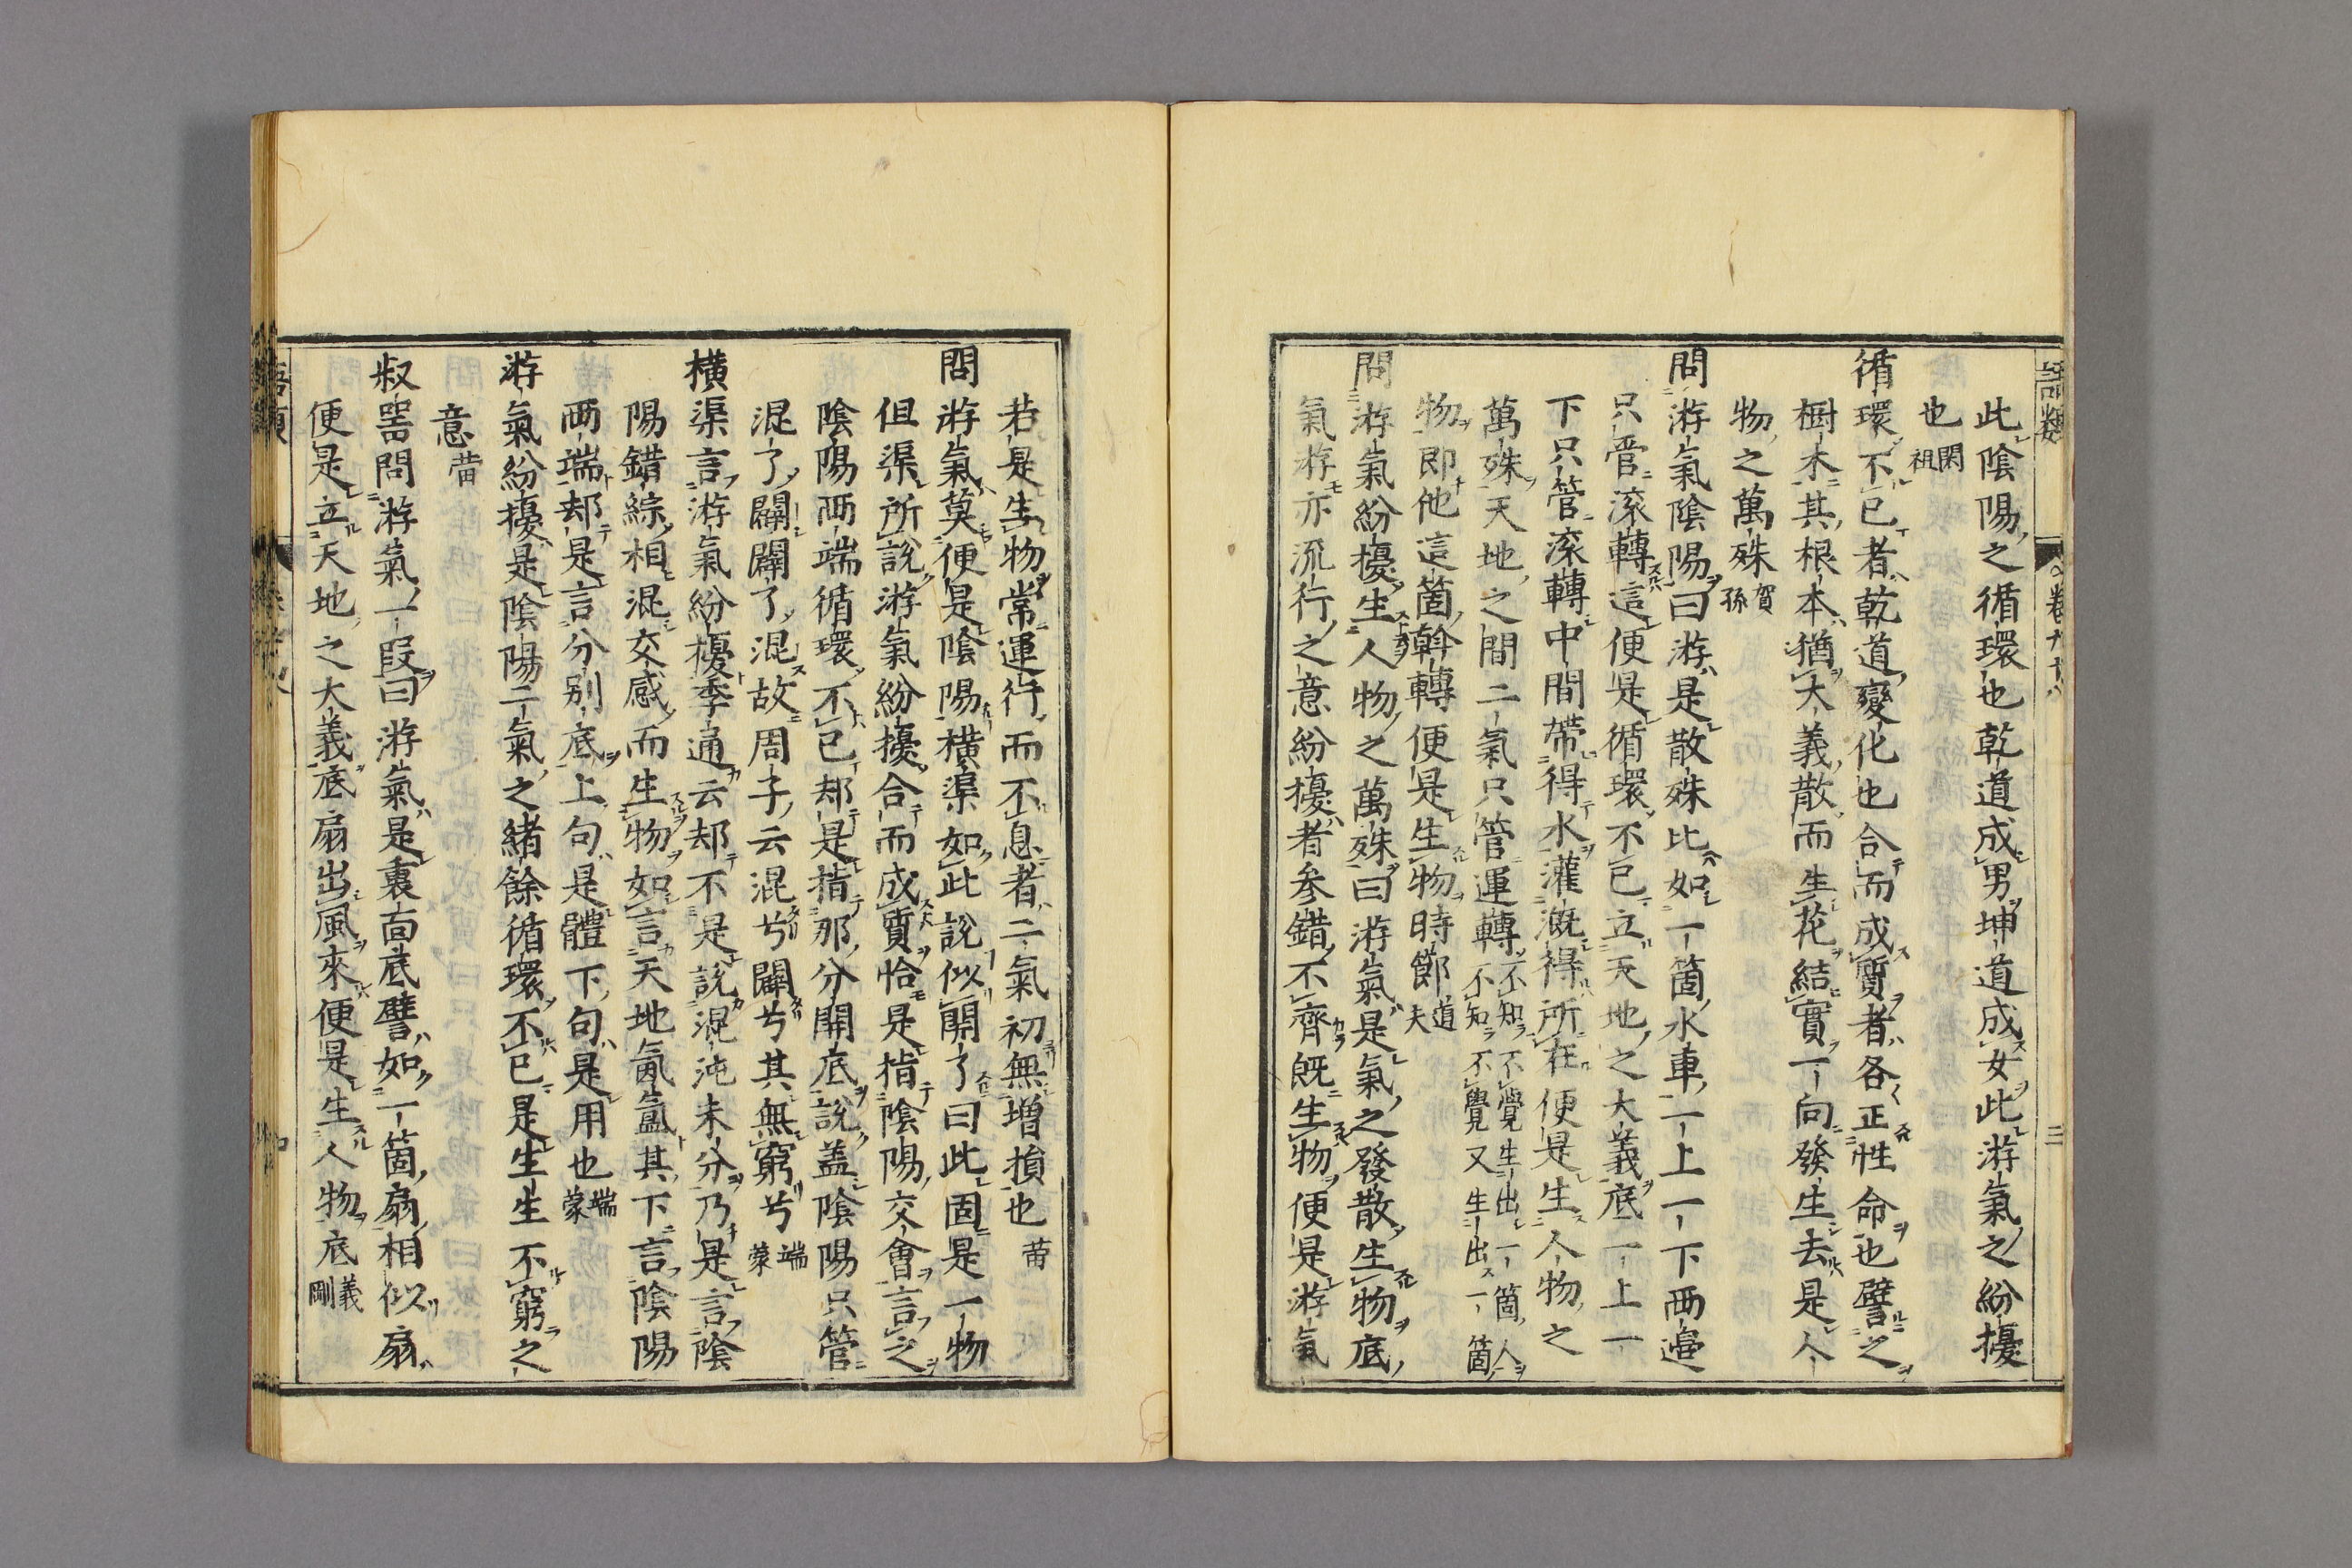 語類
卷九十八
三
此陰陽之循環也乾道成男坤道成女此游氣之紛擾
也閎祖
循環不已者乾道變化也合而成質者各正性命也譬之
樹木其根本猶大義散而生花結實一向發生去是人
物之萬殊賀孫
問游氣陰陽曰游是散殊比如一箇水車一上一下兩邉
只管滚轉這便是循環不已立天地之大義底一上一
下只管滚轉中間帶得水灌漑得所在便是生人物之
萬殊天地之間二氣只管運轉不知不覺生出一箇人
不知不覺又生出一箇
物即他這箇斡轉便是生物時節道夫
問游氣紛擾生人物之萬殊曰游氣是氣之發散生物底
氣游亦流行之意紛擾者参錯不齊既生物便是游氣
若是生物常運行而不息者二氣初無増損也𦽏
問游氣莫便是陰陽橫渠如此說似開了曰此固是一物
但渠所說游氣紛擾合而成質恰是指陰陽交會言之
陰陽兩端循環不已却是指那分開底說盖陰陽只管
混了闢闢了混故周子云混兮闢兮其無窮兮端蒙
橫渠言游氣紛擾季通云却不是說混沌未分乃是言陰
陽錯綜相混交感而生物如言天地氤氳其下言陰陽
兩端却是言分别底上句是體下句是用也端蒙
游氣紛擾是陰陽二氣之緒餘循環不已是生生不窮之
意𦽏
叔器問游氣一段曰游氣是裏面底譬如一箇扇相似扇
便是立天地之大義底扇出風來便是生人物底義剛